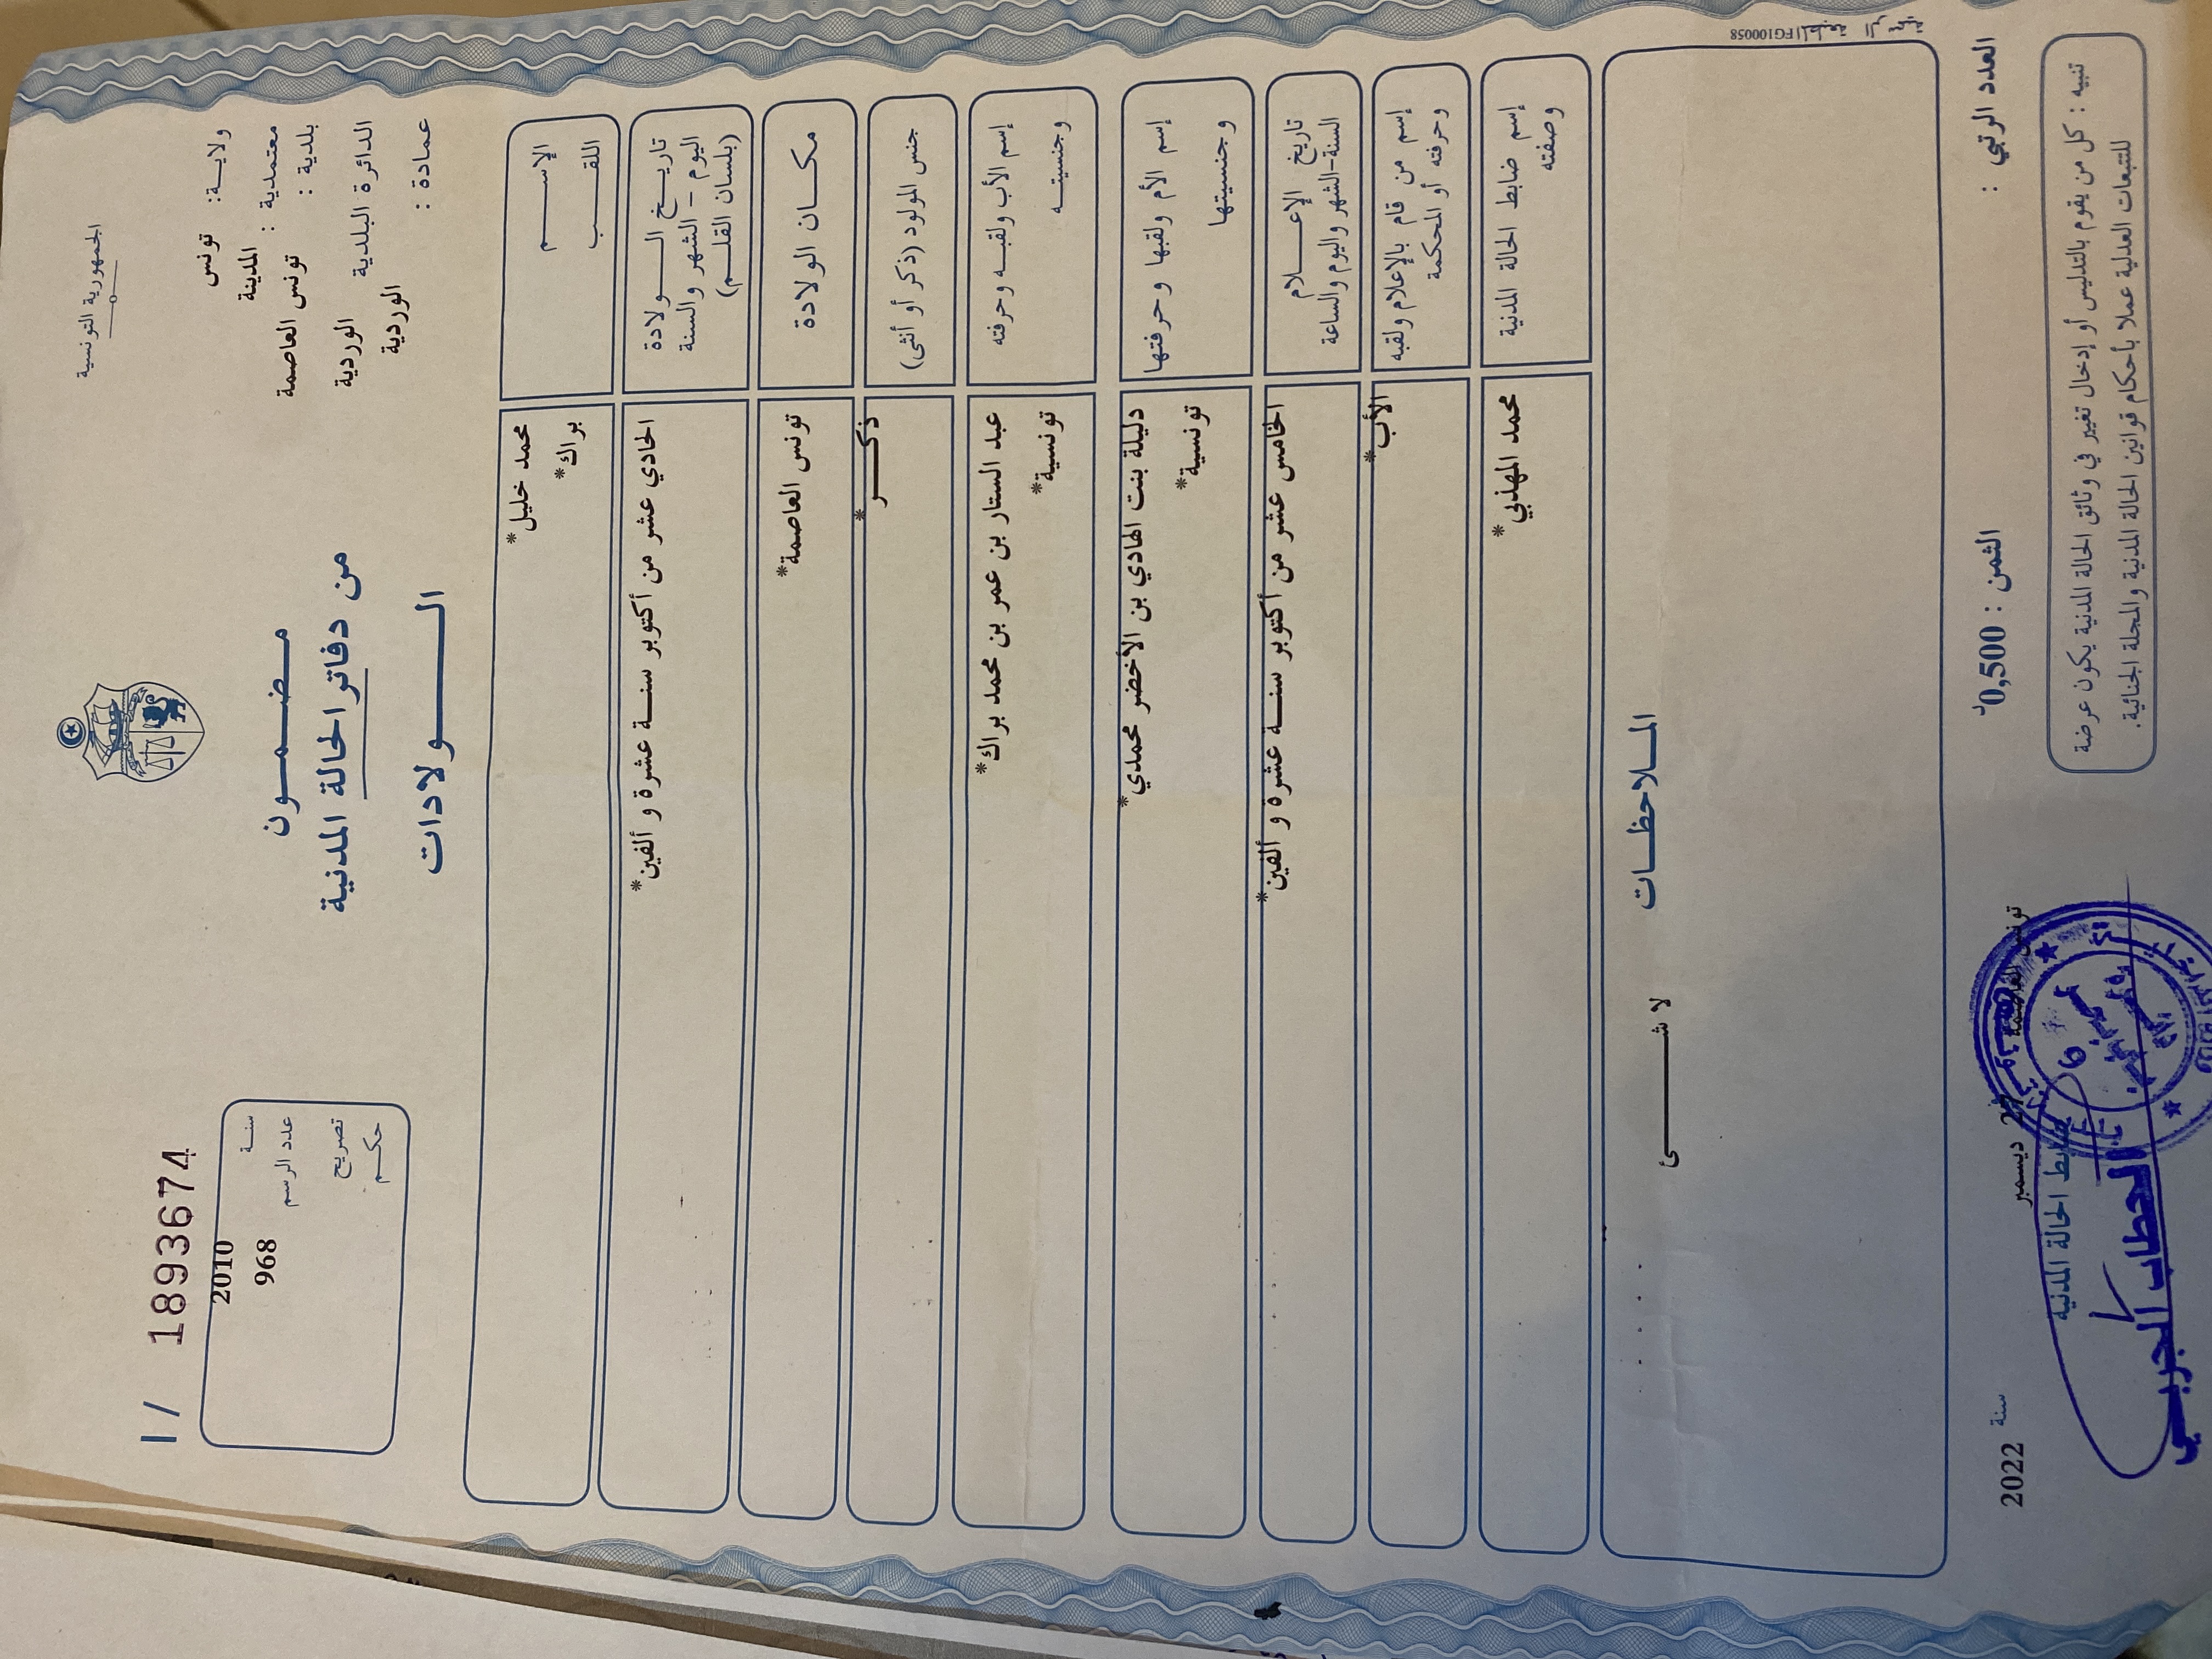 الجمهورية التونسية
ولايـة: تونس
معتمدية : المدينة
بلدية : تونس العاصمة
الدائرة البلدية الوردية
عمادة : الوردية
مضمـــون
من دفاتر الحالة المدنية
الـــولادات
I / 1893674
سنـة 2010
عدد الرسم 968
تصريح
حكـم
الإســـم محمد خليل*
اللقـــب براك*
تاريـــخ الـــولادة
اليوم - الشهر والسنة
(بلسان القلـم)
الحادي عشر من أكتوبر سنـــة عشرة و ألفين*
مكـــان الولادة تونس العاصمة*
جنس المولود (ذكر أو أنثى) ذكـــر*
إسم الأب ولقبـه وحرفته عبد الستار بن عمر بن محمد براك*
وجنسيتـــه تونسية*
إسم الأم ولقبها وحرفتها دليلة بنت الهادي بن الأخضر محمدي*
وجنسيتها تونسية*
تاريخ الإعــلام
السنة-الشهر واليوم والساعة
الخامس عشر من أكتوبر سنـــة عشرة و ألفين*
إسم من قام بالإعلام ولقبه
وحرفته أو المحكمة
الأب*
إسم ضابط الحالة المدنية
وصفته
محمد المهذبي*
المـــلاحظـــات
لا شـــــئ
FG100058
العدد الرتبي :
الثمن : 0,500د
تونس العاصمة
27 ديسمبر
سنة 2022
ضابط الحالة المدنية
الحطاب الجربي
تنبيه : كل من يقوم بالتدليس أو إدخال تغيير في وثائق الحالة المدنية يكون عرضة
للتتبعات العدلية عملا بأحكام قوانين الحالة المدنية والمجلة الجنائية.